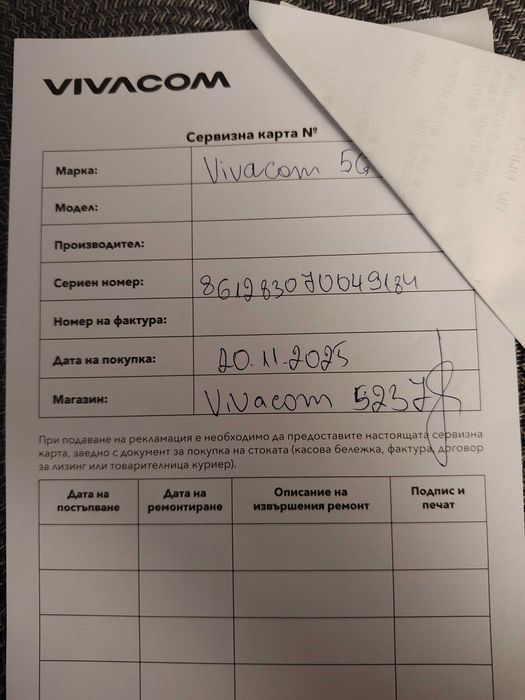 VIVACOM
Сервизна карта №
Марка: Vivacom 5G
Модел:
Производител:
Сериен номер: 861283070049184
Номер на фактура:
Дата на покупка: 20.11.2025
Магазин: Vivacom 5237
При подаване на рекламация е необходимо да предоставите настоящата сервизна
карта, заедно с документ за покупка на стоката (касова бележка, фактура, договор
за лизинг или товарителница куриер).
Дата на постъпване Дата на ремонтиране Описание на извършения ремонт Подпис и печат